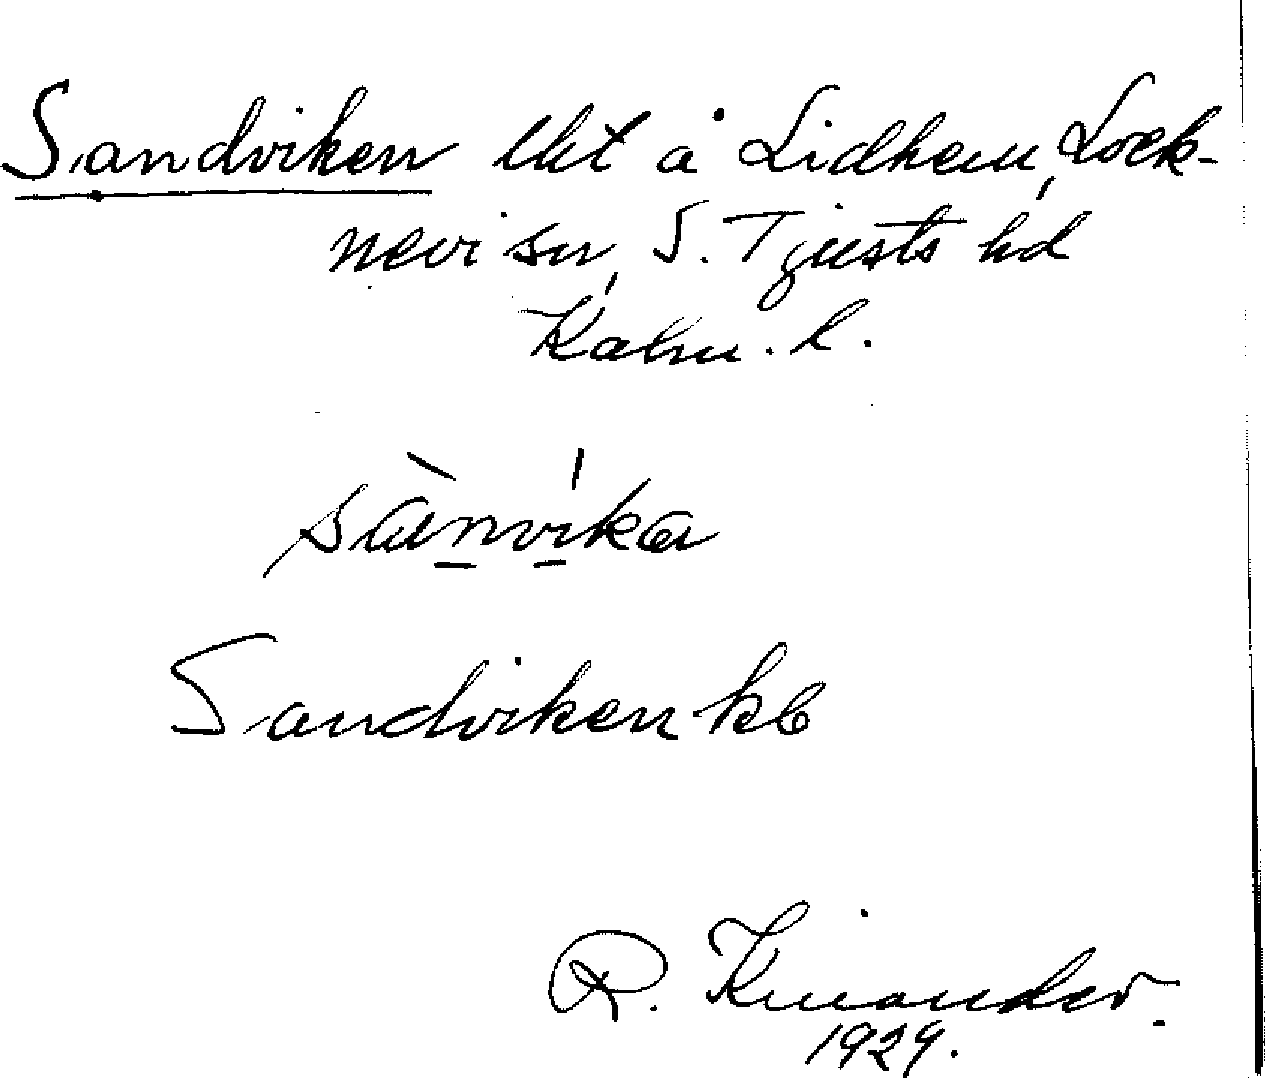 Sandviken lht å Lidhem, Lock-
nevi sn, S. Tjusts hd
Kalm. l.
sanvika
Sandviken kb
R. Kinander.
1929.